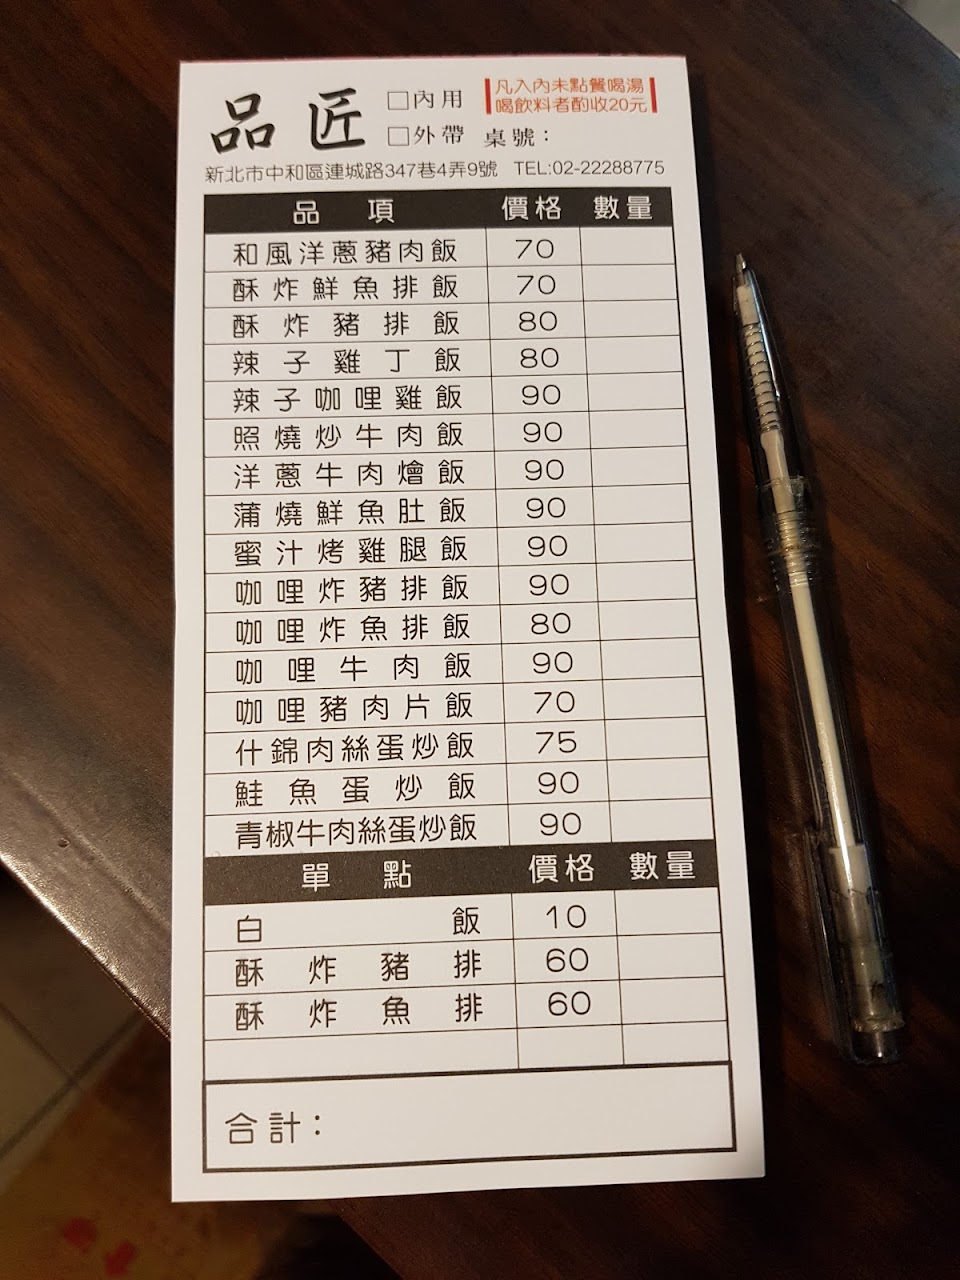 品匠 □內用 凡入內未點餐喝湯
□外帶 桌號： 喝飲料者酌收20元
新北市中和區連城路347巷4弄9號 TEL:02-22288775
品項 價格 數量
和風洋蔥豬肉飯 70
酥炸鮮魚排飯 70
酥炸豬排飯 80
辣子雞丁飯 80
辣子咖哩雞飯 90
照燒炒牛肉飯 90
洋蔥牛肉燴飯 90
蒲燒鮮魚肚飯 90
蜜汁烤雞腿飯 90
咖哩炸豬排飯 90
咖哩炸魚排飯 80
咖哩牛肉飯 90
咖哩豬肉片飯 70
什錦肉絲蛋炒飯 75
鮭魚蛋炒飯 90
青椒牛肉絲蛋炒飯 90
單點 價格 數量
白飯 10
酥炸豬排 60
酥炸魚排 60
合計：